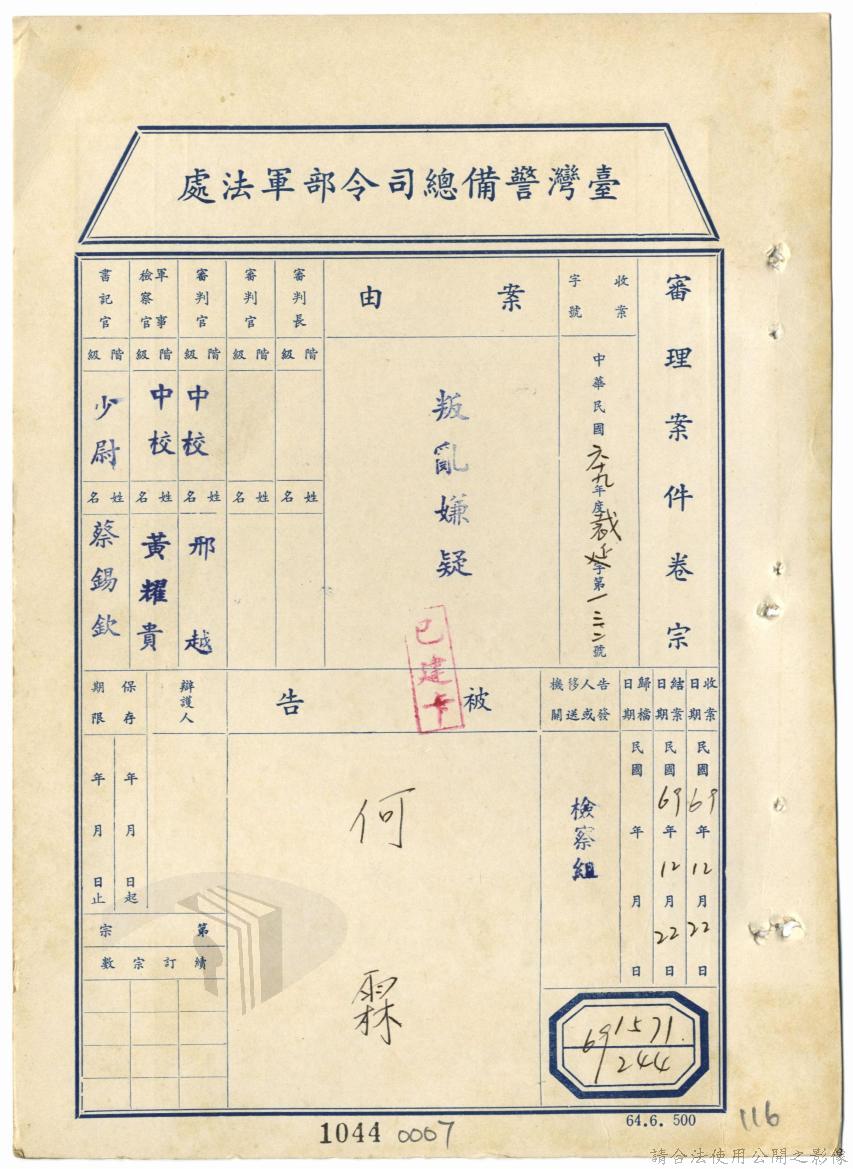 臺灣警備總司令部軍法處
審理案件卷宗
收案字號
中華民國六十九年度裁字第一三二號
案由
叛亂嫌疑
審判長
階級
姓名
審判官
階級
姓名
審判官
階級
中校
姓名
邢越
軍事檢察官
階級
中校
姓名
黃耀貴
書記官
階級
少尉
姓名
蔡錫欽
收案日期
民國69年12月22日
結案日期
民國69年12月22日
歸檔日期
民國 年 月 日
告發人或移送機關
檢察組
被告
何霖
已建卡
辯護人
保存期限
年 月 日起
年 月 日止
第 宗
續訂宗數
69 1571
244
1044 0007
64.6. 500
116
請合法使用公開之影像